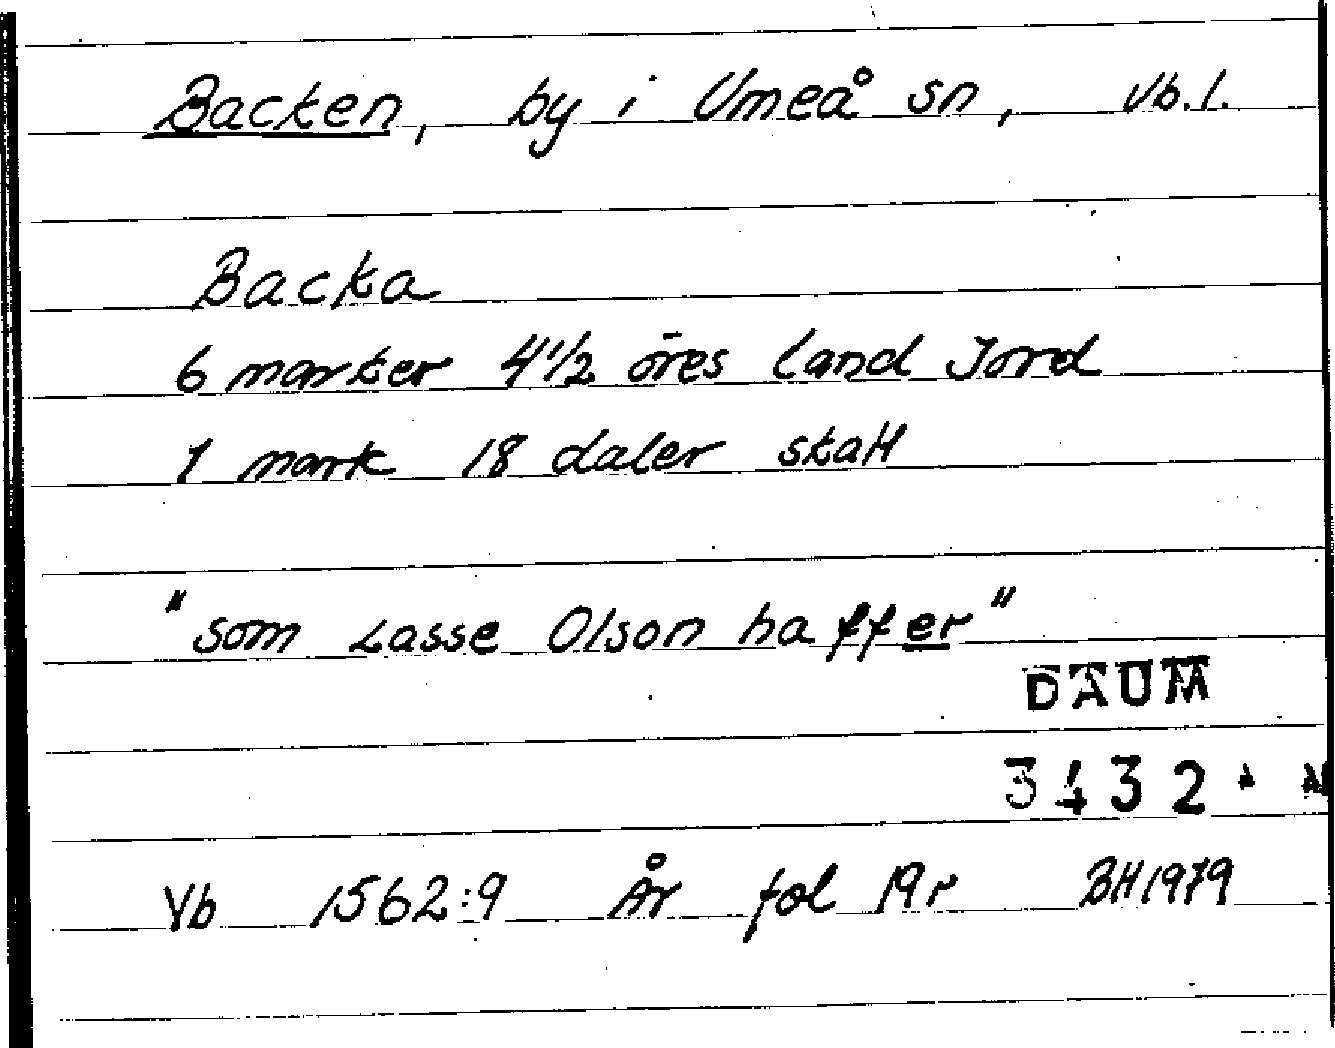 Backen, by i Umeå sn, Vb.l.
Backa
6 marker 4 1/2 öres land Jord
1 mark 18 daler skatt
"som Lasse Olson haffer"
DAUM
3432
Vb 1562:9 År fol 19r BH1979